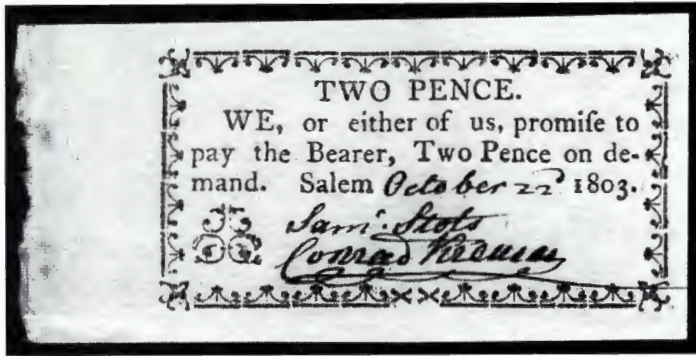 TWO PENCE.
WE, or either of us, promiſe to
pay the Bearer, Two Pence on de-
mand. Salem October 22d 1803.
Saml. Stots
Conrad Kreuser